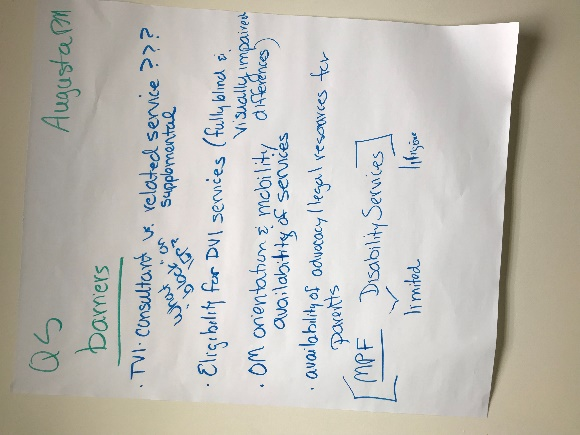 Q5
Augusta PM
barriers
• TVI - consultant vs. related service ???
supplemental
what is or
is not
• Eligibility for DVI services (fully blind &
visually impaired
differences)
• OM orientation & mobility
availability of services
• availability of advocacy/legal resources for
parents
[MPF Disability Services]
limited